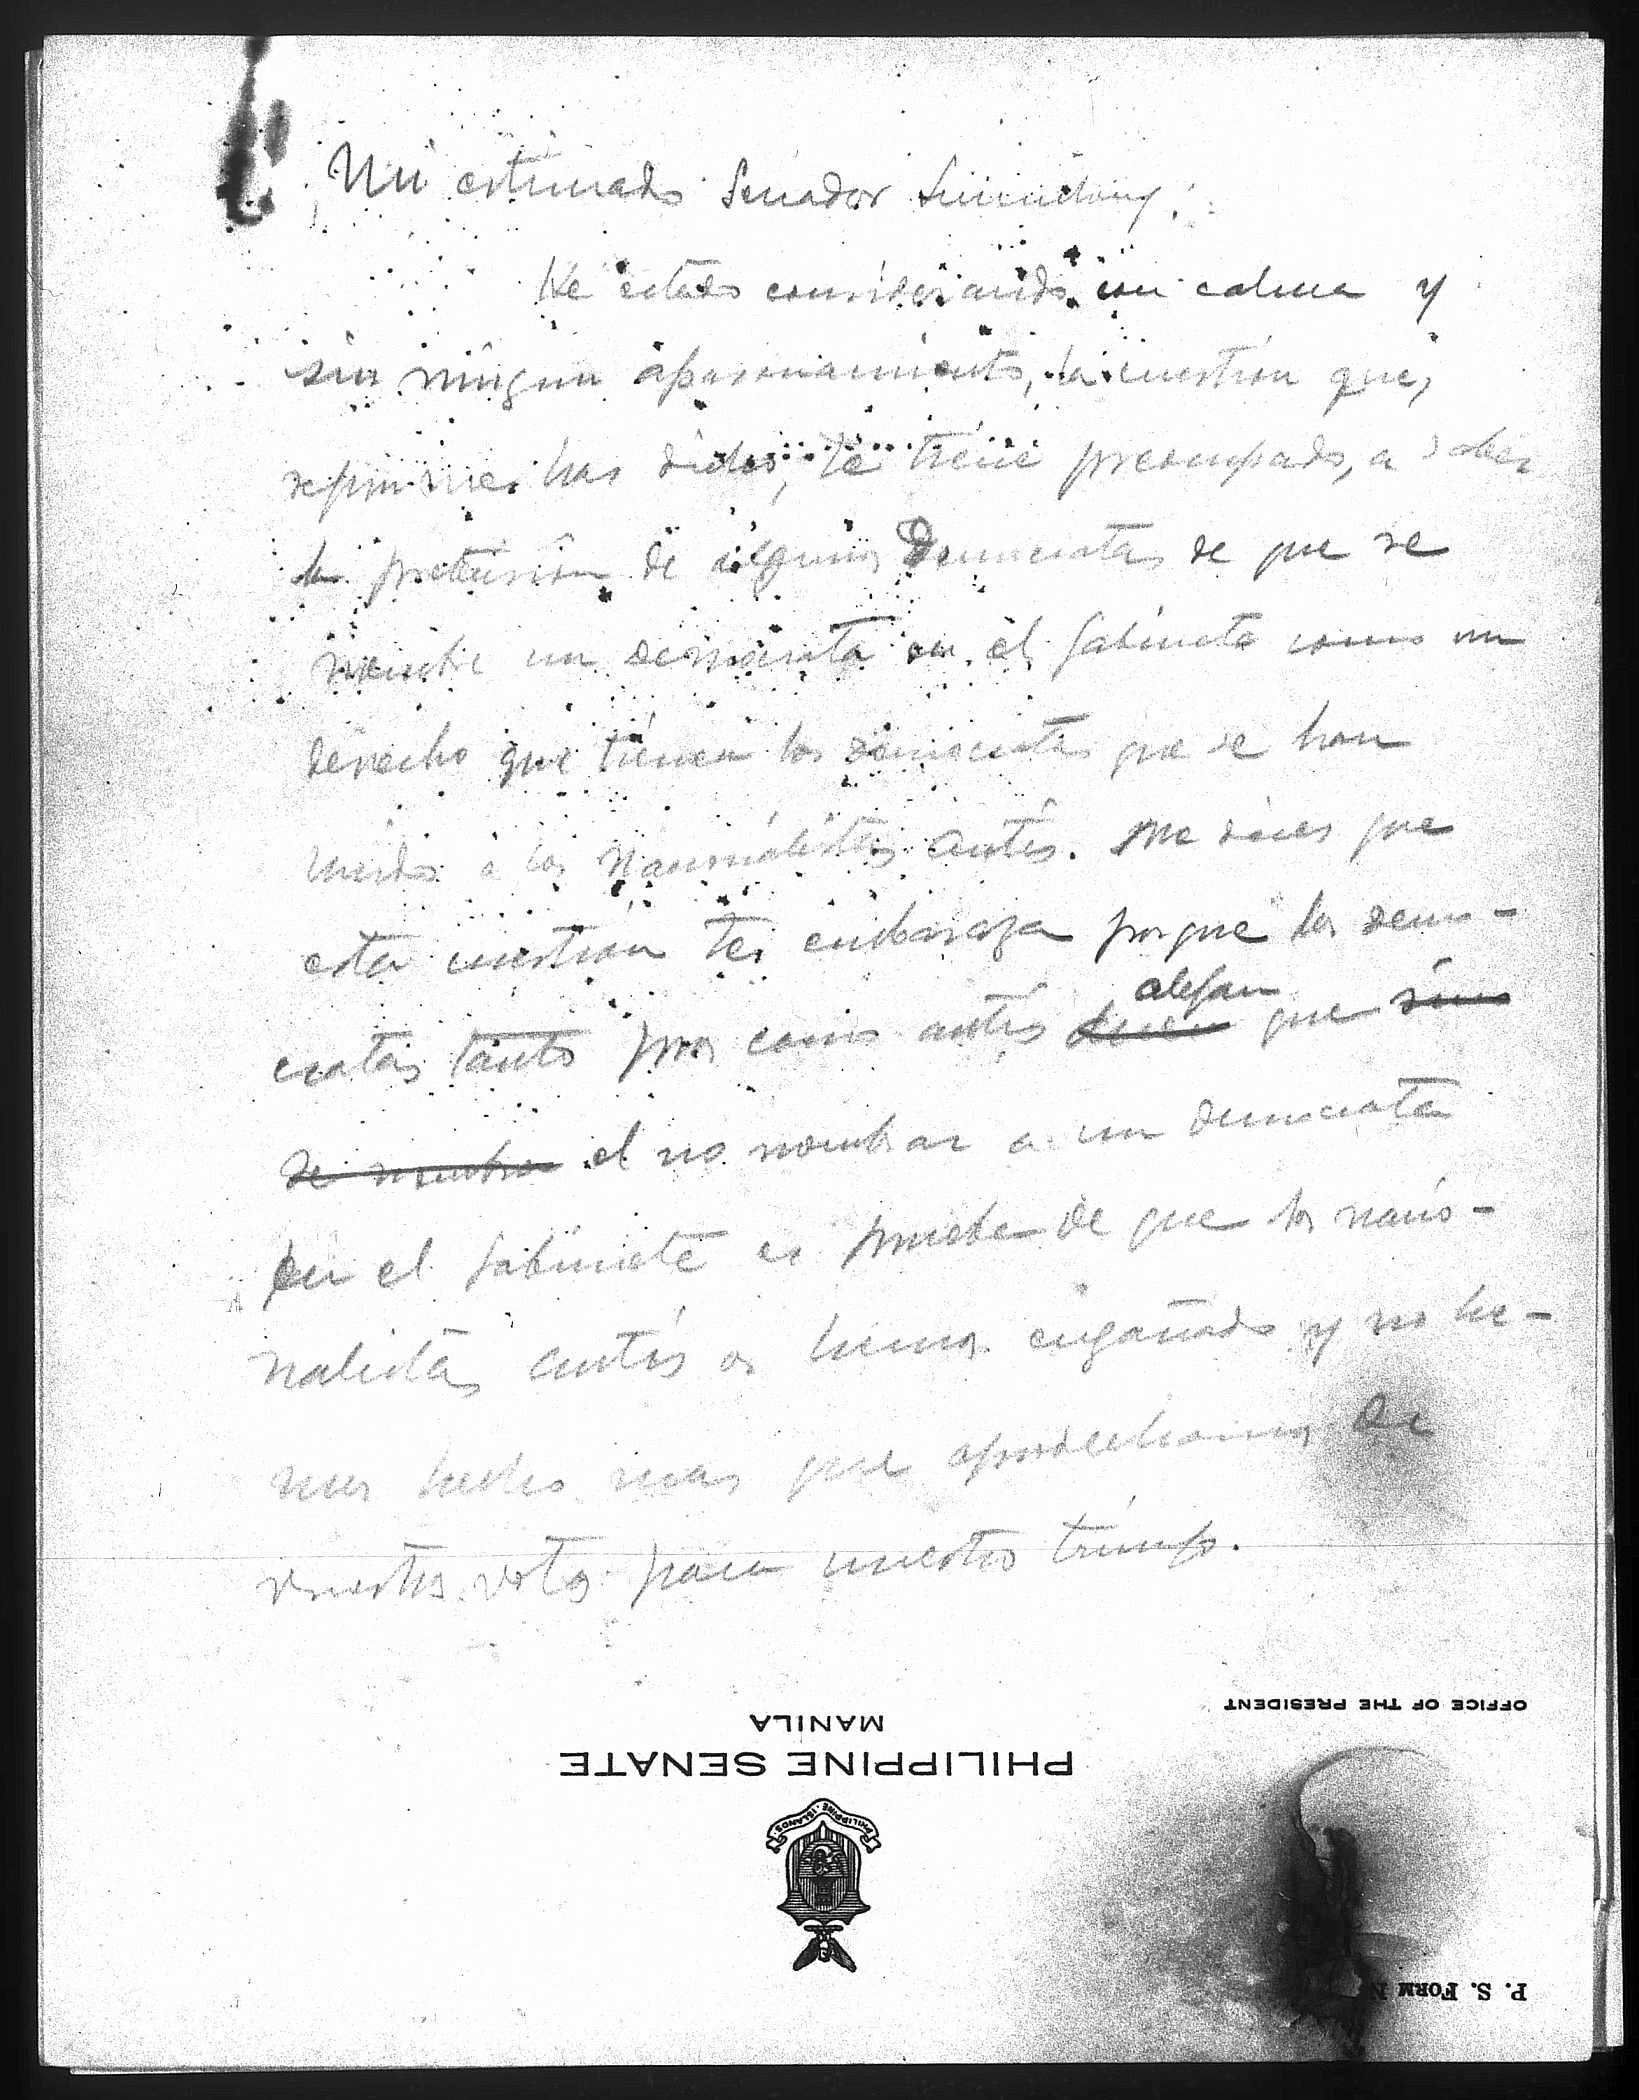 Mi estimado Senador Sumulong:
He estado considerando con calma y
sin ningun apasionamiento, la cuestión que,
segun me has dicho, te tiene preocupado, a saber
la pretensión de algunos Democratas de que se
nombre un democrata en el Gabinete como un
derecho que tienen los democratas que se han
unido a los Nacionalistas antis. Me dices que
esta cuestión te embaraza porque los demo-
cratas tanto pros como antis dicen alegan que sino
se nombra el no nombrar a un democrata
en el Gabinete es prueba de que los nacio-
nalistas antis os hemos engañado y no he-
mos hecho mas que aprovecharnos de
vuestros votos para nuestro triunfo.
OFFICE OF THE PRESIDENT
MANILA
PHILIPPINE SENATE
PHILIPPINE ISLANDS
P. S. FORM